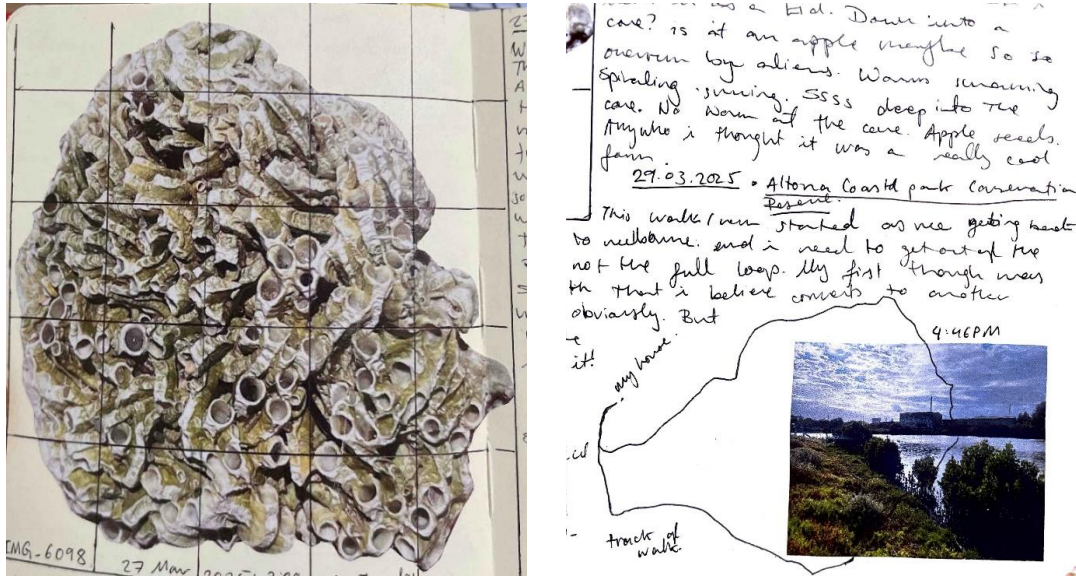 IMG-6098
27 Mar 2025
a
Down into a
core? is at an apple maybe so so
overrun by aliens. Worms
spiraling. SSSS deep into the
core. No worm at the core. Apple seeds.
Anywho i thought it was a really cool
form.
29.03.2025. Altona Coastal park Conservation
Reserve.
This walk/run started as me getting back
to melbourne. and i need to get out of the
not the full loop. My first though was
that i believe converts to another
obviously. But
e
it!
my house.
4:46PM
track of
walk.